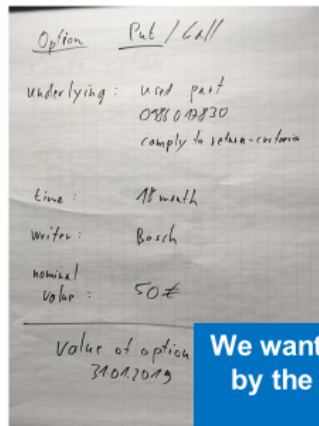 Option Put / Call
underlying: used part
0986 017830
comply to return-criteria
time: 18 month
writer: Bosch
nominal
value: 50 €
Value of option
31.01.2019
We want
by the